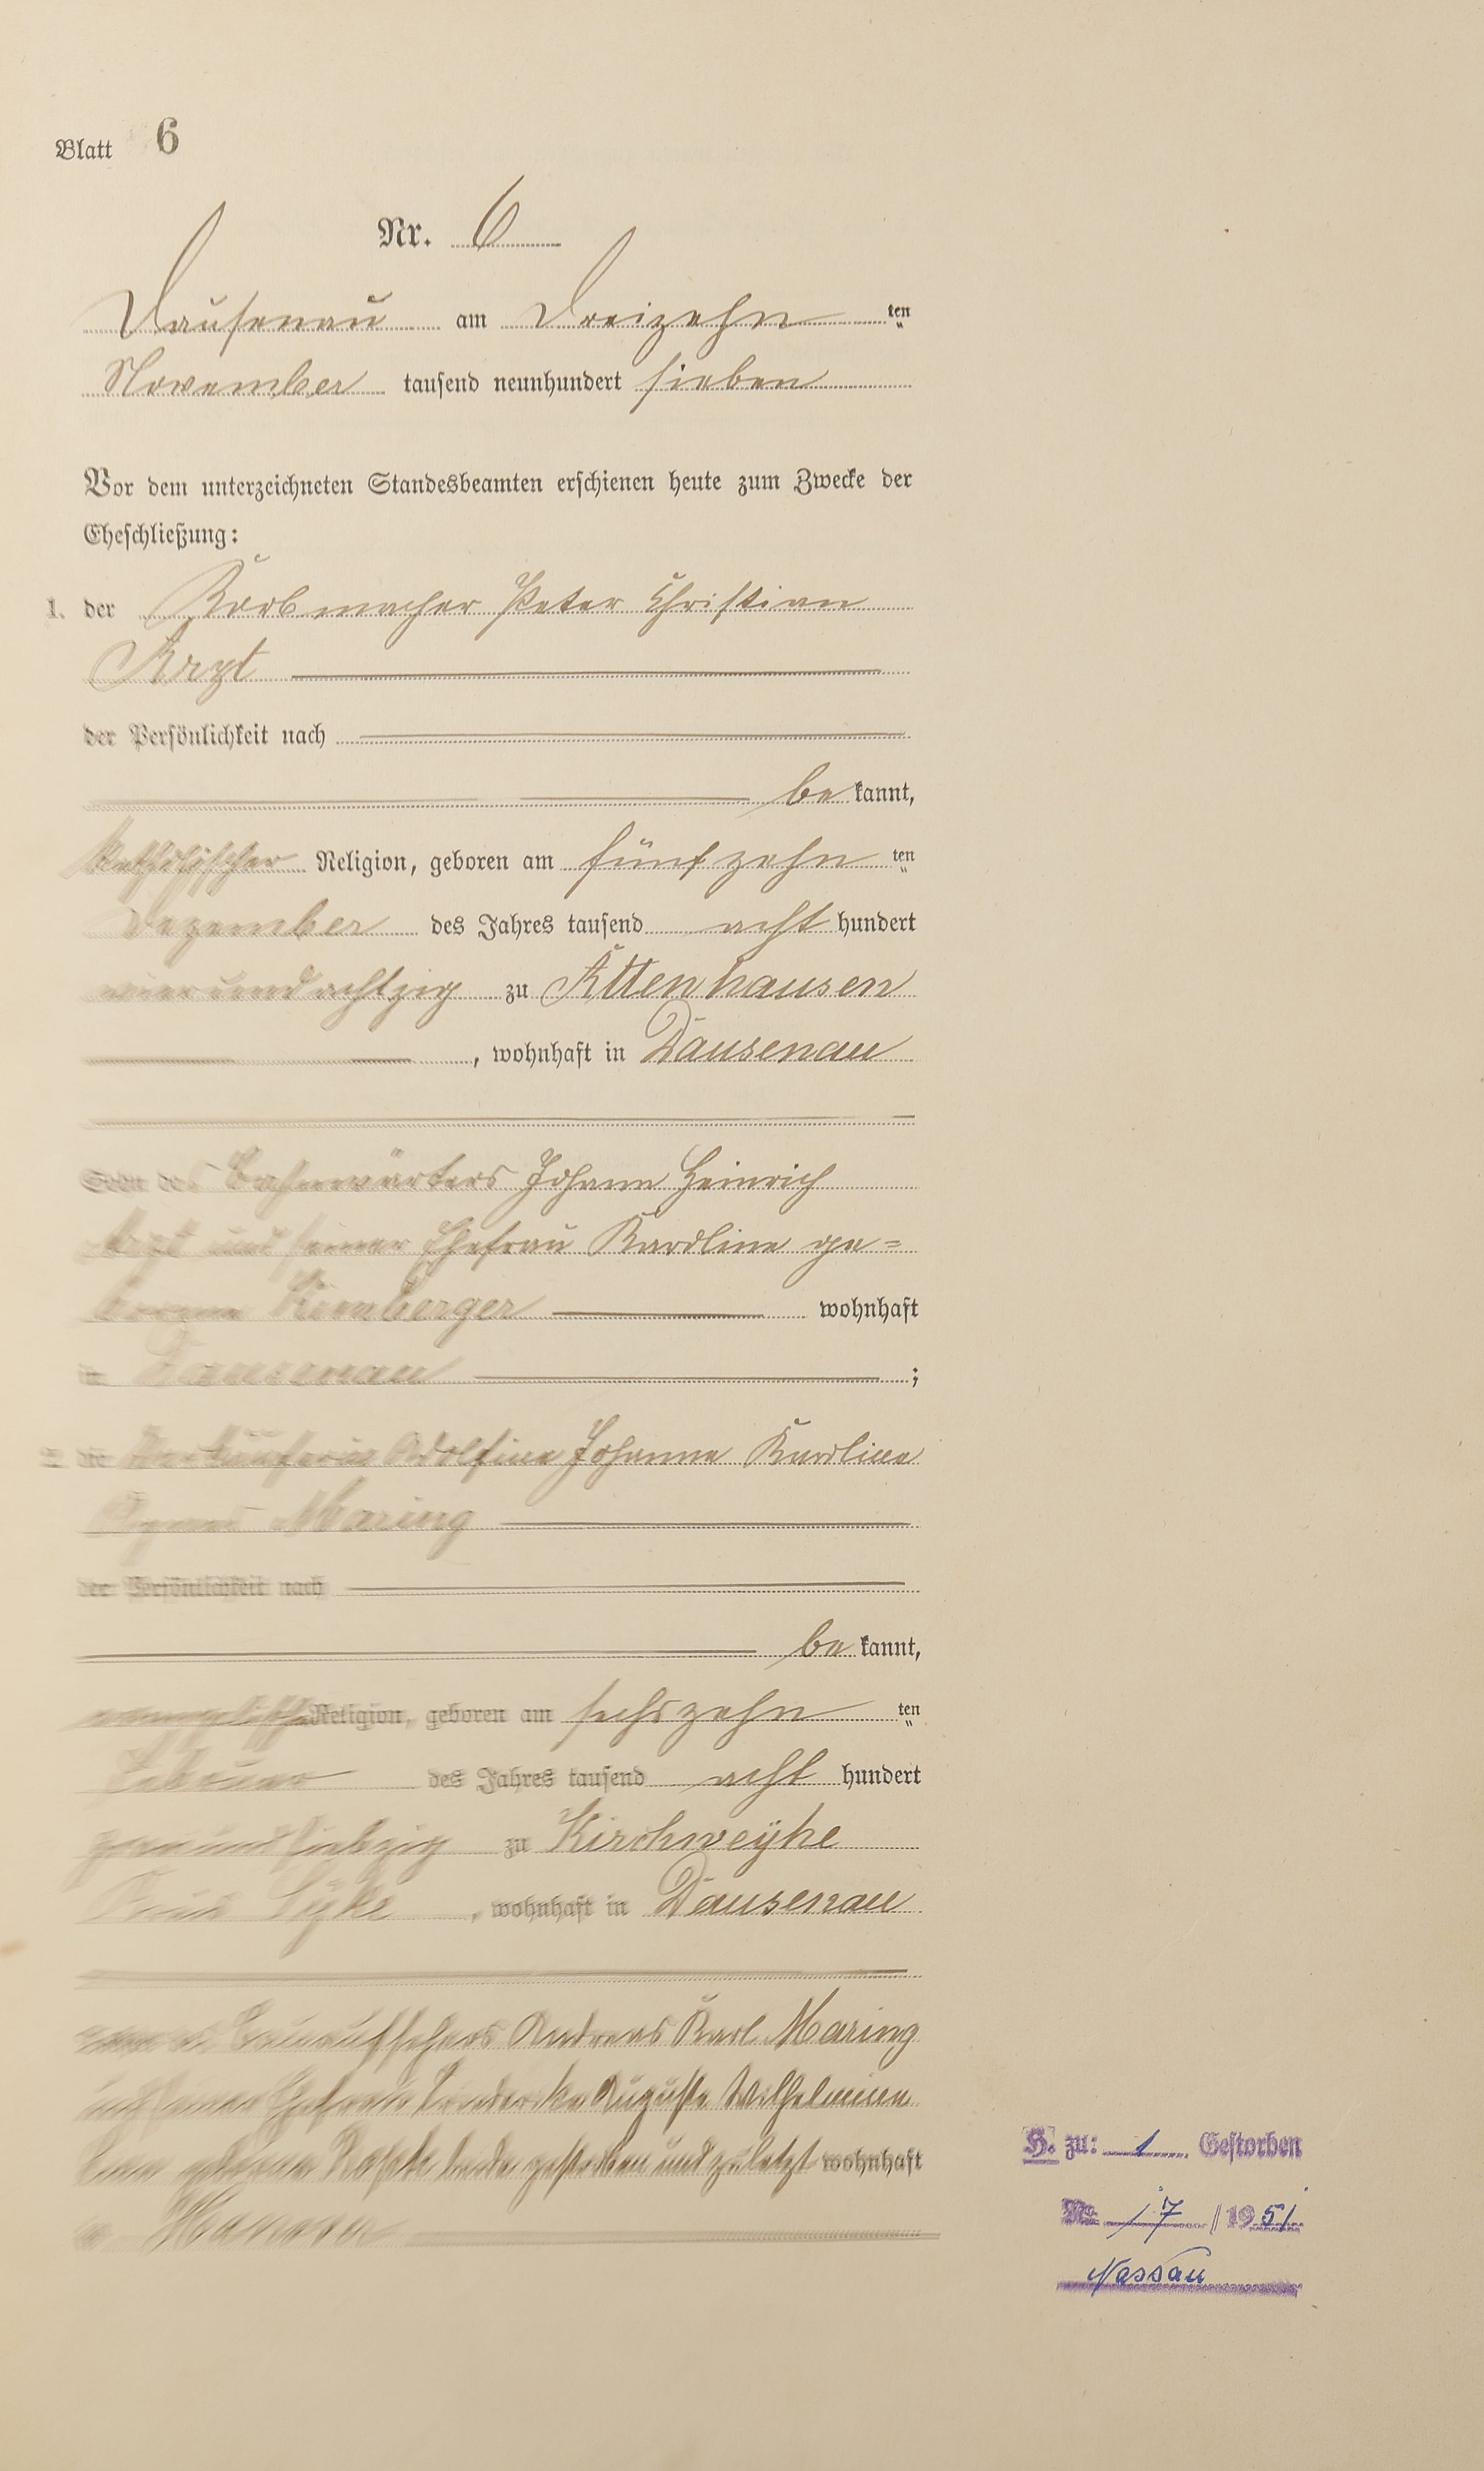 Blatt 6
Nr. 6
Dausenau am Dreizehnten
November tausend neunhundert sieben
Vor dem unterzeichneten Standesbeamten erschienen heute zum Zwecke der
Eheschließung:
1. der Korbmacher Peter Christian
Arzt
der Persönlichkeit nach
bekannt,
katholischer Religion, geboren am fünfzehnten
Dezember des Jahres tausend achthundert
vierundachtzig zu Attenhausen
, wohnhaft in Dausenau
Sohn des Bahnwärters Johann Heinrich
Arzt und seiner Ehefrau Karoline ge=
borene wohnhaft
in Dausenau ;
2. die Adolfine Johanne Karoline
Agnes Maring
der Persönlichkeit nach
bekannt,
Religion, geboren am sechszehnten
Februar des Jahres tausend achthundert
siebzig zu Kirchweyhe
Kreis Syke , wohnhaft in Dausenau
Andreas Karl Maring
und seiner Ehefrau Auguste Wilhelmine
beide gestorben und zuletzt wohnhaft
in
H. zu: 1 Gestorben
Nr. 17 / 1951
Nassau